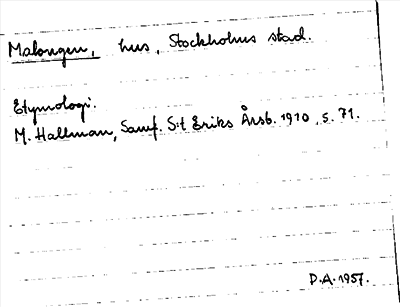 Malongen, hus, Stockholms stad.
Etymologi.
M. Hallman, Samf. S:t Eriks Årsb. 1910, s. 71.
D.A. 1957.